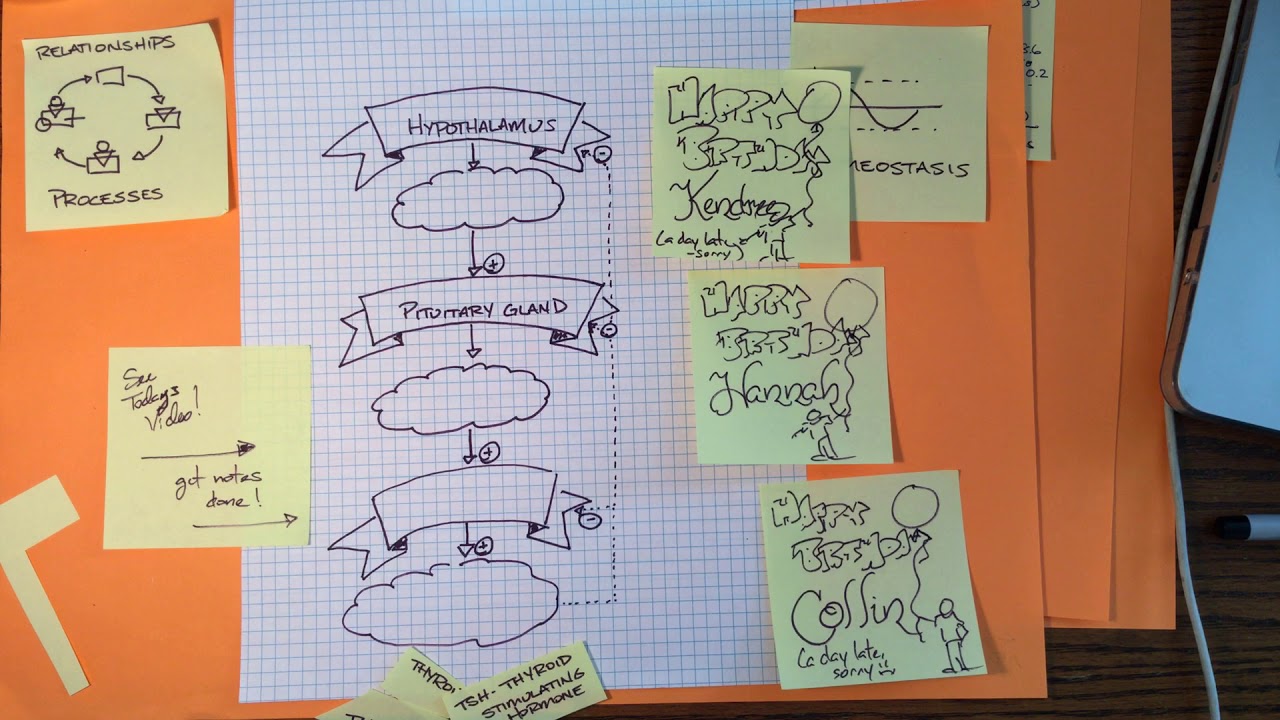 RELATIONSHIPS
PROCESSES
HYPOTHALAMUS
+
PITUITARY GLAND
-
-
+
+
-
See
Todays
Video!
got notes
done!
HAPPY
BRTHDY
Kendra
(a day late
-sorry)
HAPPY
BRTHDY
Hannah
HAPPY
BRTHDY
Collin
(a day late,
sorry
MEOSTASIS
.6
0.2
TSH- THYROID
STIMULATING
HORMONE